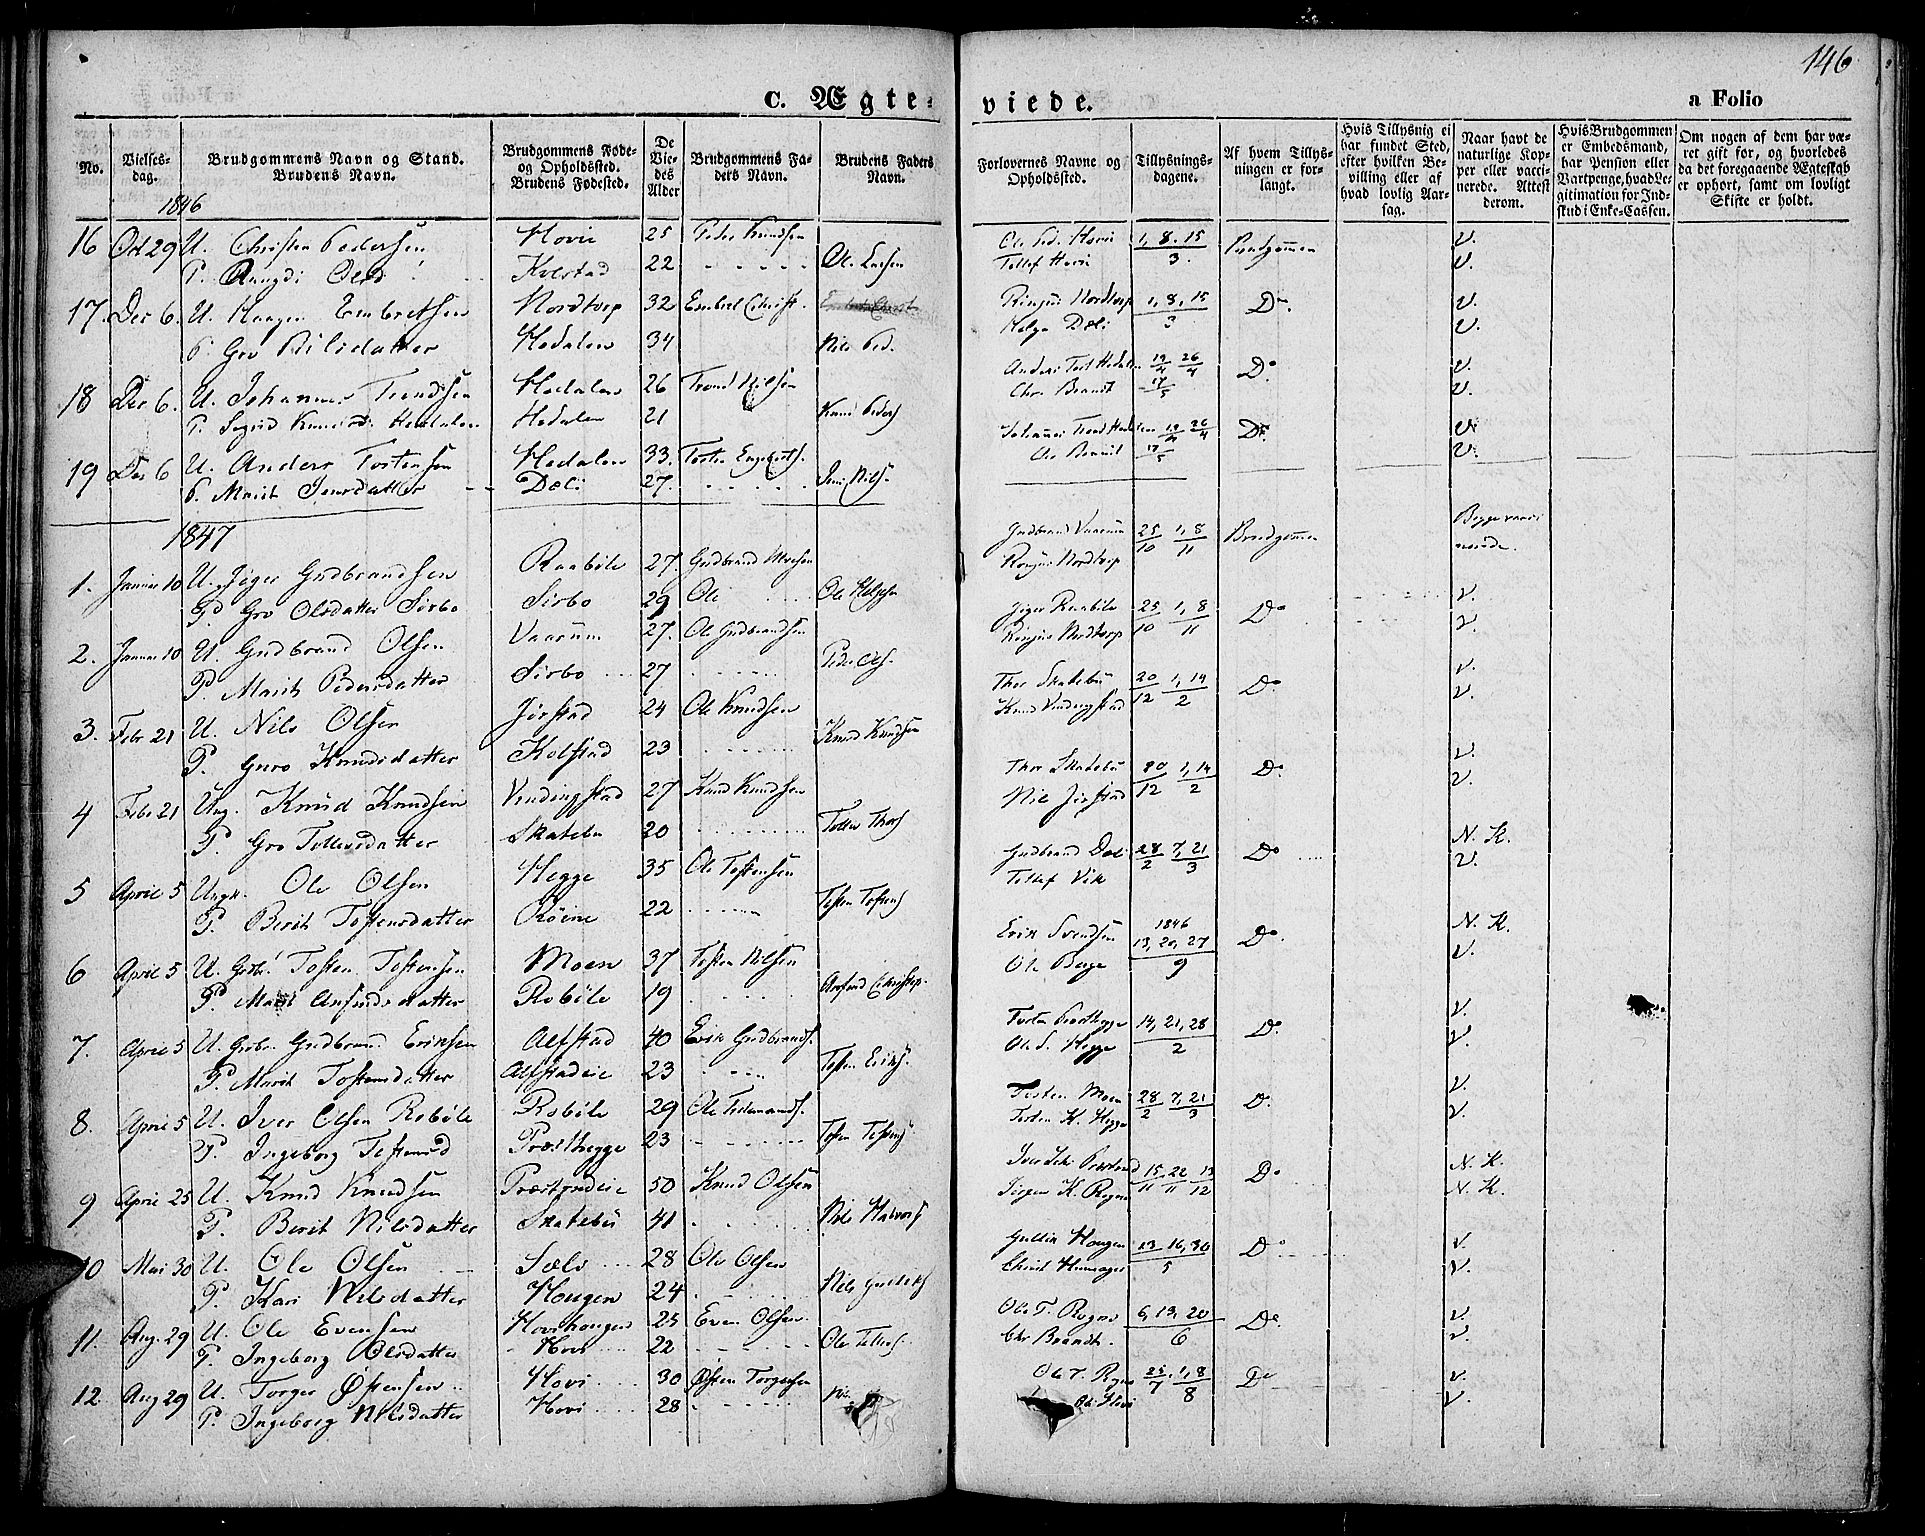 146
C. Ægteviede.
a Folio
No.
Vielsesdag.
Brudgommens Navn og Stand.
Brudens Navn.
Brudgommens Føde- og Opholdssted.
Brudens Fødested.
De Viedes Alder
Brudgommens Faders Navn.
Brudens Faders Navn.
Forlovernes Navne og Opholdssted.
Tillysningsdagene.
Af hvem Tillysningen er forlangt.
Hvis Tillysnig ei har fundet Sted, efter hvilken Bevilling eller af hvad lovlig Aarsag.
Naar havt de naturlige Kopper eller vaccinerede. Attest derom.
Hvis Brudgommen er Embedsmand, har Pension eller Vartpenge, hvad Legitimation for Indskud i Enke-Cassen.
Om nogen af dem har været gift før, og hvorledes da det foregaaende Ægteskab er ophørt, samt om lovligt Skifte er holdt.
1846
16 Oct 29 U. Christen Pedersen Hovie 25 Peder Knudsen Ole Ped. Hovie 1, 8, 15 / 3 Brudgommen V.
P. Olsd Kolstad 22 Ole Tollef Hovie V.
17. Dec 6. U. Haagen Embretsen Nordtorp 32 Embret Christ. Nordtorp 1, 8, 15 / 3 Do V.
P. Gro Nilsdatter Hedalen 34 Nils Ped. Helge Dæli V.
18 Dec 6. U. Johannes Trondsen Hedalen 26 Trond Nilsen Anders Tost Hedalen 19/4 26/4 17/5 Do V.
P. Sigrid Knudsd. Hedalen Hedalen 21 Knud Peders Chr. Brandt V.
19 Dec 6 U. Anders Tostensen Hedalen 33. Tosten Johannes Trond Hedalen 19/4 26/4 17/5 Do V.
P. Marit Jensdatter Dæli 27. Jens Nils. Brandt V.
1847
1. Januar 10 U. Jøger Gudbrandsen Raabøle 27. Gudbrand Gudbrand Vaarum 25/10 1, 8/11 Brudgommen Begge vacci
P. Gro Olsdatter Sørbo Sirbo 29 Ole Ole Helgesen Nordtorp nerede.
2. Januar 10 U. Gudbrand Olsen Vaarum 27. Ole Gudbrandsen Jøger Raabøle 25/10 1, 8/11 Do V.
P. Marit Pedersdatter Sirbo 27 Peder Ols. Nordtorp V.
3. Febr 21 U. Nils Olsen Jørstad 24 Ole Knudsen Thor Skatebu 20/12 1, 14/2 Do V.
P. Guro Knudsdatter Kolstad 23 Knud Knudsen Knud Vindingstad V.
4 Febr 21 Ung. Knud Knudsen Vindingstad 27 Knud Knudsen Thor Skatebu 20/12 1, 14/2 Do V.
P. Gro Tollevsdatter Skatebu 20 Tollev Thors Nils Jørstad V.
5 April 5 Ungk. Ole Olsen Hegge 35 Ole Tostensen Gudbrand Dæli 28/2 7, 21/3 Do N. K.
P. Berit Tostensdatter Røine 22 Tosten Tostens Tollef Vik V.
6 April 5 U. Gerbr. Tosten Tostensen Moen 37 Tosten Nilsen Erik Svendsen 1846 13, 20, 27 / 9 Do N. K.
P. Marit Anfindsdatter Robøle 19 Anfind Christop. Ole Berge V.
7. April 5 U. Gerbr. Gudbrand Eriksen Alfstad 40 Erik Gudbrands. Tosten Præsthegge 14, 21, 28 / 2 Do V.
P. Marit Tostensdatter Alfstadeie 23 Tosten Eriks. Ole S. Hegge V.
8. April 5 U. Iver Olsen Robøle Robøle 29 Ole Tosten Moen 28/2 7, 21/3 Do V.
P. Ingeborg Tostensd Præsthegge 23 Tosten Tostens Tosten K. Hegge V.
9 April 25 U. Knud Knudsen 50 Knud Olsen 15/11 22/11 13/12 Do N. K.
P. Berit Nilsdatter Skatebu 41 Nils Halvors Jørgen K. Rogne N. K.
10 Mai 30 U. Ole Olsen Sælo 28 Ole Olsen Gullik Hougen 13, 16, 30 / 5 Do V.
P. Kari Nilsdatter Hougen 24 Nils Gulliks Christ V.
11. Aug. 29 U. Ole Evensen Hovihougen 25 Even Olsen. Ole T. Rogne 6, 13, 20 / 6 Do V.
P. Ingeborg Olsdatter Hovi 22 Ole Tollefs. Chr Brandt. V.
12. Aug 29 U. Torger Østensen Hovi 30 Østen Torgersen Ole T. Rogne 25/7. 1, 8/8 Do V.
P. Ingeborg Nilsdatter Hovi 28 Ole Hovi V.